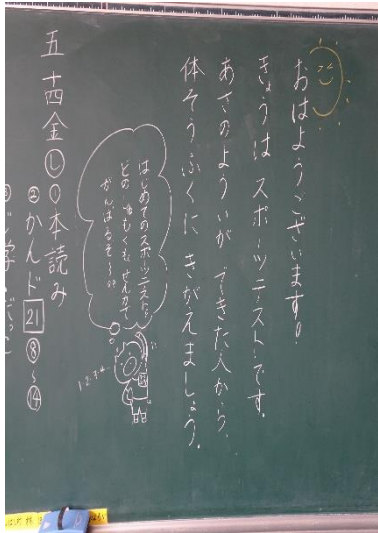 おはようございます！
きょうは スポーツテストです。
あさのよういが できた人から、
体そうふくに きがえましょう。
はじめてのスポーツテスト。
どのしゅもくもぜん力で
がんばるぞ〜!!
1・2・3・4…
五 十四 金 ㋛ ①本読み
②かんド 21 ⑧〜⑭